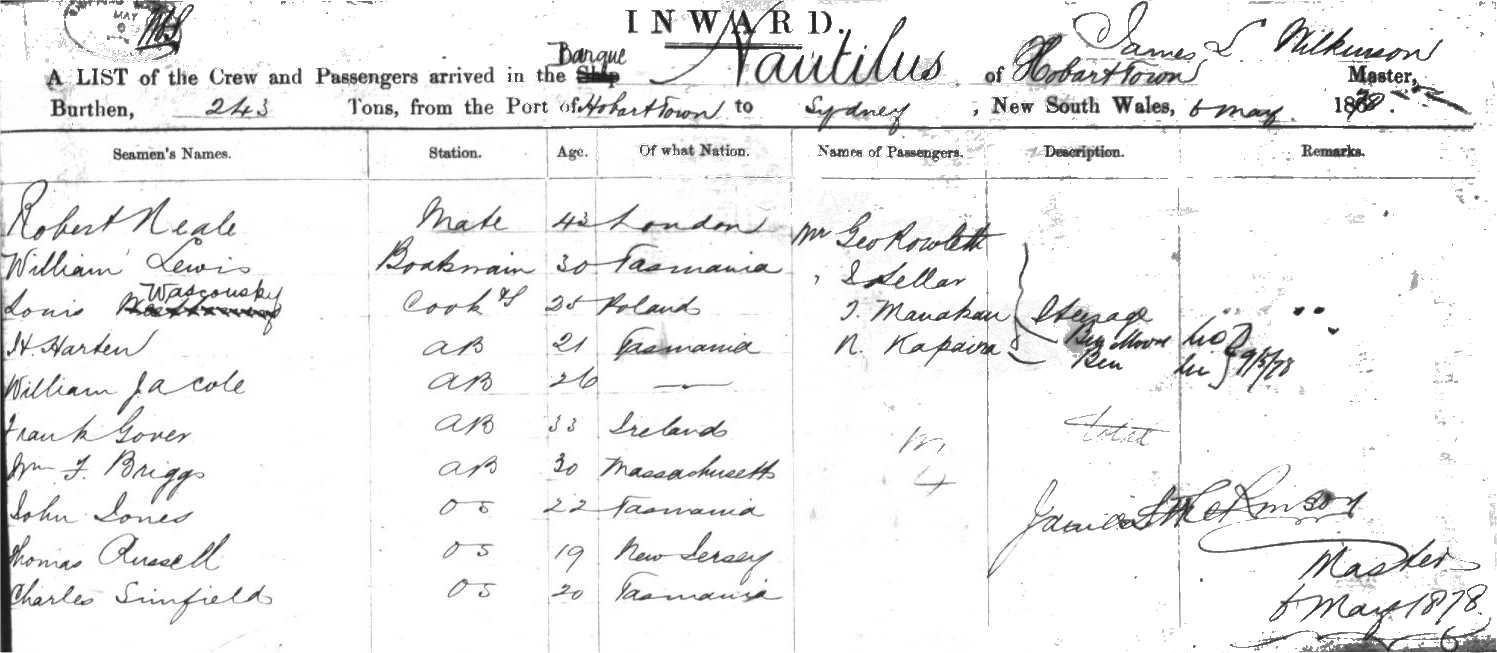 MAY
INWARD.
A LIST of the Crew and Passengers arrived in the Ship Barque Nautilus of Hobart Town James L Wilkinson Master,
Burthen, 243 Tons, from the Port of Hobart Town to Sydney, New South Wales, 6 May 1878.
Seamen's Names. Station. Age. Of what Nation. Names of Passengers. Description. Remarks.
Robert Neale Mate 43 London Mr Geo Rowlett
William Lewis Boatswain 30 Tasmania " S Sellar
Louis Wascousky Cook & S 25 Poland J. Manakau Steerage
H. Harten AB 21 Tasmania N. Kapaira Ben
William Ja Cole AB 26 — Ben 9/5/78
Frank Gover AB 33 Ireland M total
Wm F. Briggs AB 30 Massachusetts 4
John Jones OS 22 Tasmania James L Wilkinson
Thomas Russell OS 19 New Jersey Master
Charles Sinfield OS 20 Tasmania 6 May 1878